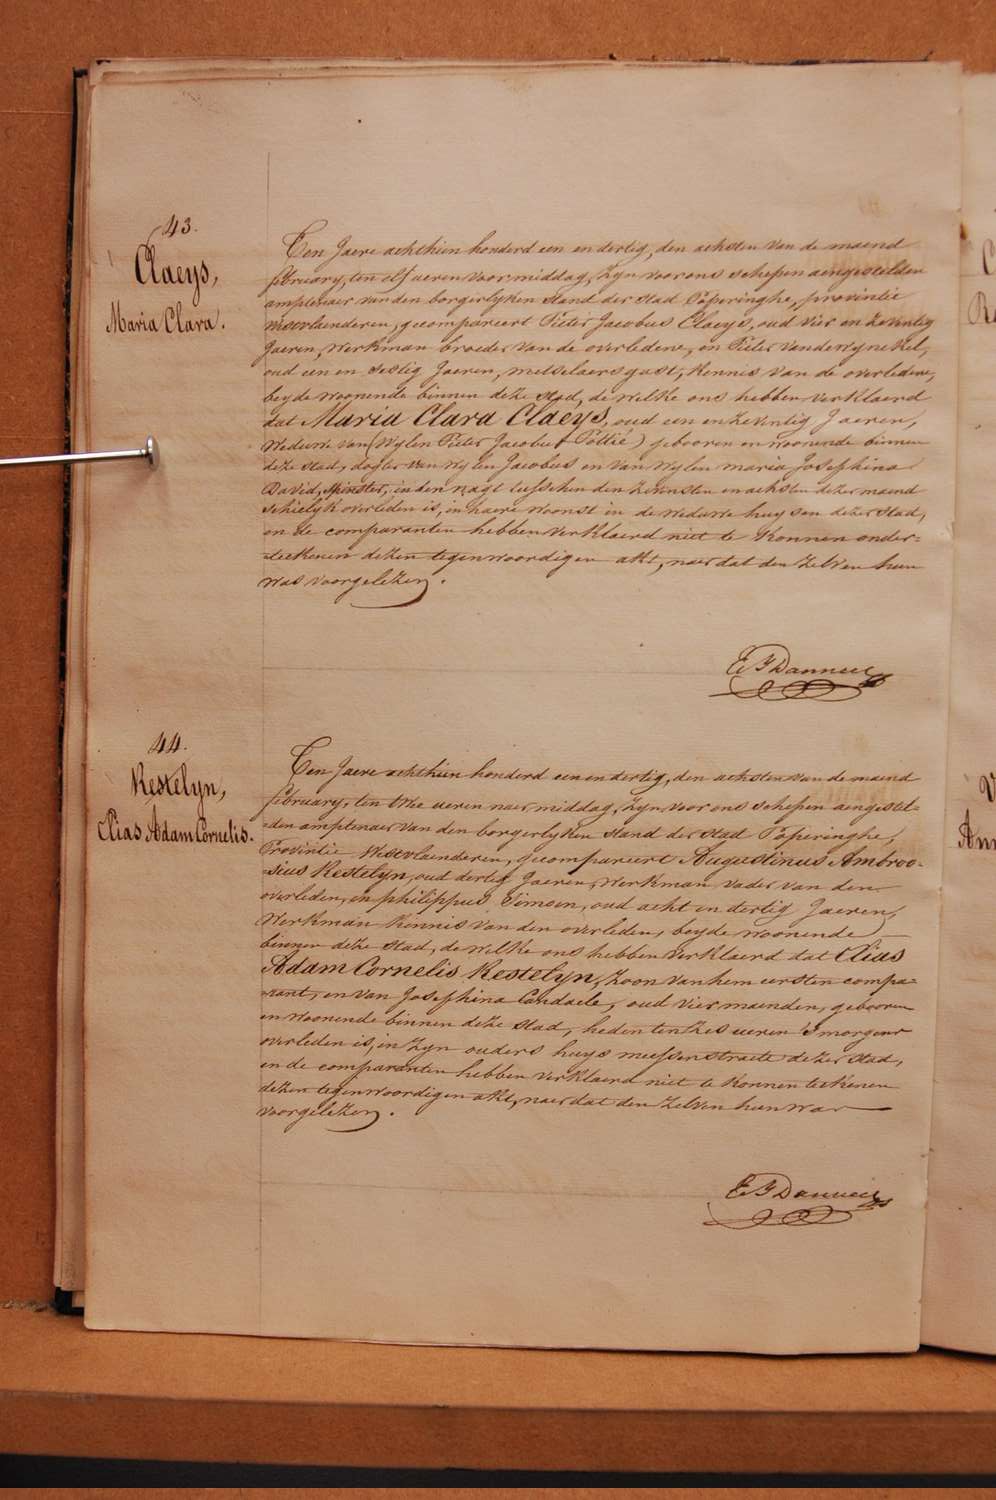 43.
Claeys,
Maria Clara.
Ten Jaere achthien honderd een en dertig, den achsten van de maend
february, ten elf ueren voor middag, zyn voor ons schepen aengestelden
amptenaer van den borgerlyken stand der stad Poperinghe, provintie
westvlaenderen, gecompareert Pieter Jacobus Claeys, oud vier en zeventig
Jaeren, Werkman broeder van de overledene, en Pieter Vandewynckel,
oud een en sestig Jaeren, metselaersgast, Kennis van de overledene,
beyde woonende binnen deze stad, de welke ons hebben verklaerd
dat Maria Clara Claeys, oud een en zeventig Jaeren,
Weduwe van (Wylen Pieter Jacobus Pottié) gebooren en woonende binnen
deze stad, dogter van wylen Jacobus en van wylen maria Josephina
David, Spinster, in den nagt tusschen den zevensten en achsten dezer maend
schielyk overleden is, in haere woonst in de weduwe huysen dezer stad,
en de comparanten hebben verklaerd niet te Konnen onder-
-teekenen dezen tegenwoordigen akt, naer dat den zelven hun
was voorgelezen.
E J Danneel
44.
Kestelyn,
Elias Adam Cornelis.
Ten Jaere achthien honderd een en dertig, den achsten van de maend
february, ten twee ueren naer middag, zyn voor ons schepen aengestel-
-den amptenaer van den borgerlyken stand der stad Poperinghe,
Provintie Westvlaenderen, gecompareert Augustinus Ambroo-
-sius Kestelyn, oud dertig Jaeren, Werkman, vader van den
overleden, en philippus Simoen, oud acht en dertig Jaeren,
Werkman Kennis van den overleden, beyde woonende
binnen deze stad, de welke ons hebben verklaerd dat Elias
Adam Cornelis Kestelyn, zoon van hem eersten compa-
-rant, en van Josephina Candaele, oud vier maenden, gebooren
en woonende binnen deze stad, heden ten zes ueren 's morgens
overleden is, en zyn ouders huys meessenstraete dezer stad,
en de comparanten hebben verklaerd niet te Konnen teekenen
dezen tegenwoordigen akt, naer dat den zelven hun was
voorgelezen.
E J Danneel